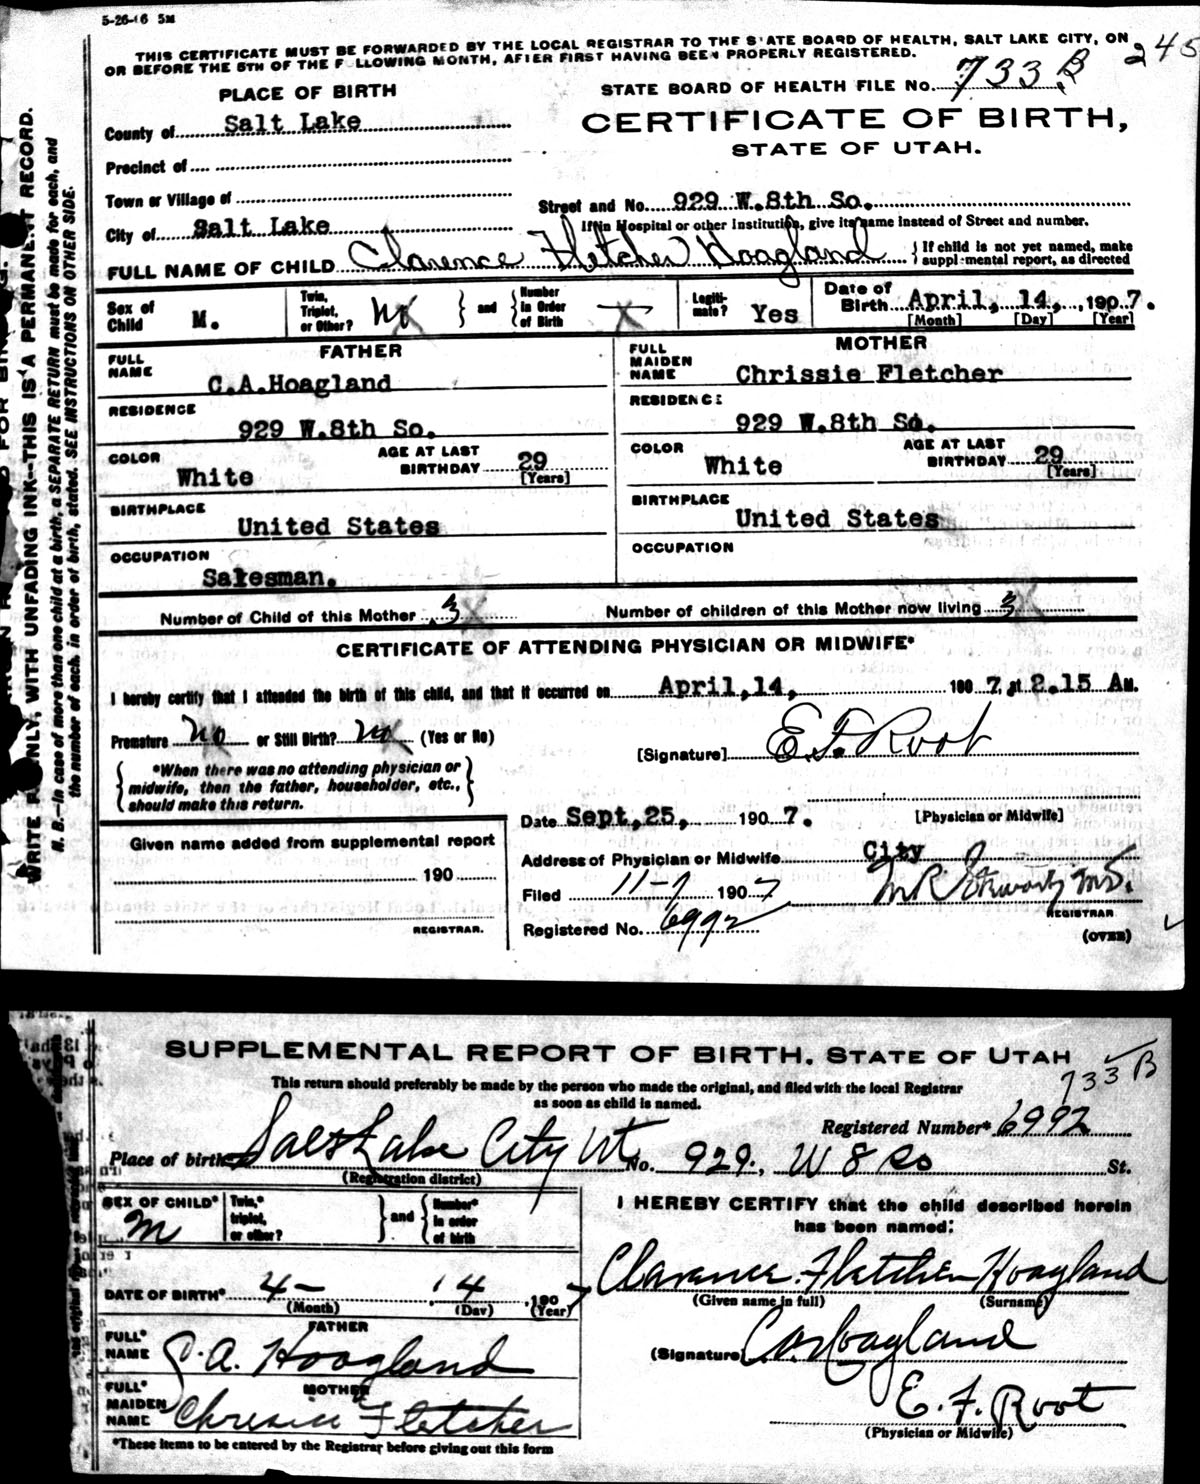 5-26-06 5M
THIS CERTIFICATE MUST BE FORWARDED BY THE LOCAL REGISTRAR TO THE STATE BOARD OF HEALTH, SALT LAKE CITY, ON
OR BEFORE THE 5TH OF THE FOLLOWING MONTH, AFTER FIRST HAVING BEEN PROPERLY REGISTERED.
245
PLACE OF BIRTH
STATE BOARD OF HEALTH FILE No. 733 B
County of Salt Lake
CERTIFICATE OF BIRTH,
STATE OF UTAH.
Precinct of
Town or Village of
Street and No. 929 W.8th So.
City of Salt Lake
If in Hospital or other Institution, give its name instead of Street and number.
FULL NAME OF CHILD Clarence Fletcher Hoagland
If child is not yet named, make
supplemental report, as directed
Sex of Child M.
Twin, Triplet, or Other? No
and
Number in Order of Birth
Legitimate? Yes
Date of Birth April, 14, 1907.
[Month] [Day] [Year]
FATHER
MOTHER
FULL NAME C.A.Hoagland
FULL MAIDEN NAME Chrissie Fletcher
RESIDENCE 929 W.8th So.
RESIDENCE 929 W.8th So.
COLOR White
AGE AT LAST BIRTHDAY 29 [Years]
COLOR White
AGE AT LAST BIRTHDAY 29 [Years]
BIRTHPLACE United States
BIRTHPLACE United States
OCCUPATION Salesman.
OCCUPATION
Number of Child of this Mother 3
Number of children of this Mother now living 3
CERTIFICATE OF ATTENDING PHYSICIAN OR MIDWIFE*
I hereby certify that I attended the birth of this child, and that it occurred on April,14, 1907, at 2.15 AM.
Premature No or Still Birth? No (Yes or No)
[Signature] E.F. Root
*When there was no attending physician or
midwife, then the father, householder, etc.,
should make this return.
Date Sept,25, 1907.
[Physician or Midwife]
Given name added from supplemental report
Address of Physician or Midwife City
190
Filed 11-7 1907
REGISTRAR
REGISTRAR.
Registered No. 6992
(OVER)
WRITE PLAINLY, WITH UNFADING INK--THIS IS A PERMANENT RECORD.
N. B.—In case of more than one child at a birth, a SEPARATE RETURN must be made for each, and
the number of each, in order of birth, stated. SEE INSTRUCTIONS ON OTHER SIDE.
SUPPLEMENTAL REPORT OF BIRTH, STATE OF UTAH
733 B
This return should preferably be made by the person who made the original, and filed with the local Registrar
as soon as child is named.
Registered Number* 6992
Place of birth Salt Lake City Ut No. 929, W 8 So St.
(Registration district)
SEX OF CHILD* M
Twin,* triplet, or other?
and
Number* in order of birth
I HEREBY CERTIFY that the child described herein
has been named:
Clarence Fletcher Hoagland
(Given name in full) (Surname)
DATE OF BIRTH* 4- 14 1907
(Month) (Day) (Year)
FATHER
FULL* NAME C.A. Hoagland
(Signature) C A Hoagland
MOTHER
FULL* MAIDEN NAME Chrissie Fletcher
E. F. Root
(Physician or Midwife)
*These items to be entered by the Registrar before giving out this form